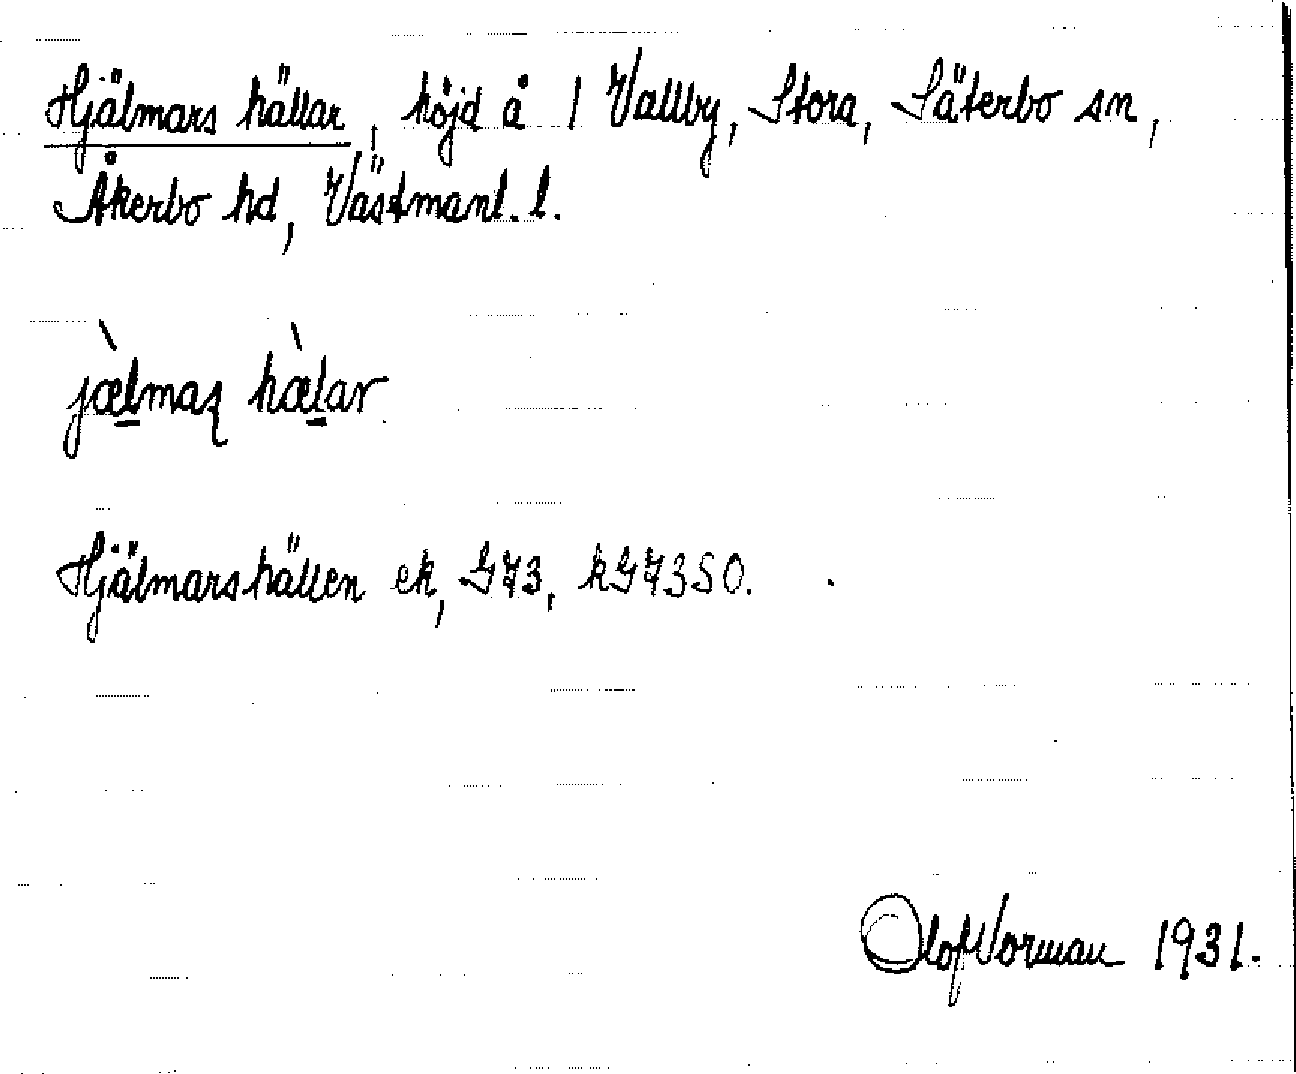 Hjälmars hällar, höjd å 1 Vallby, Stora, Säterbo sn,
Åkerbo hd, Västmanl. l.
jæ̀lmaʂ hæ̀lar
Hjälmarshällen ek, G73, kG73SO.
Olof Norman 1931.